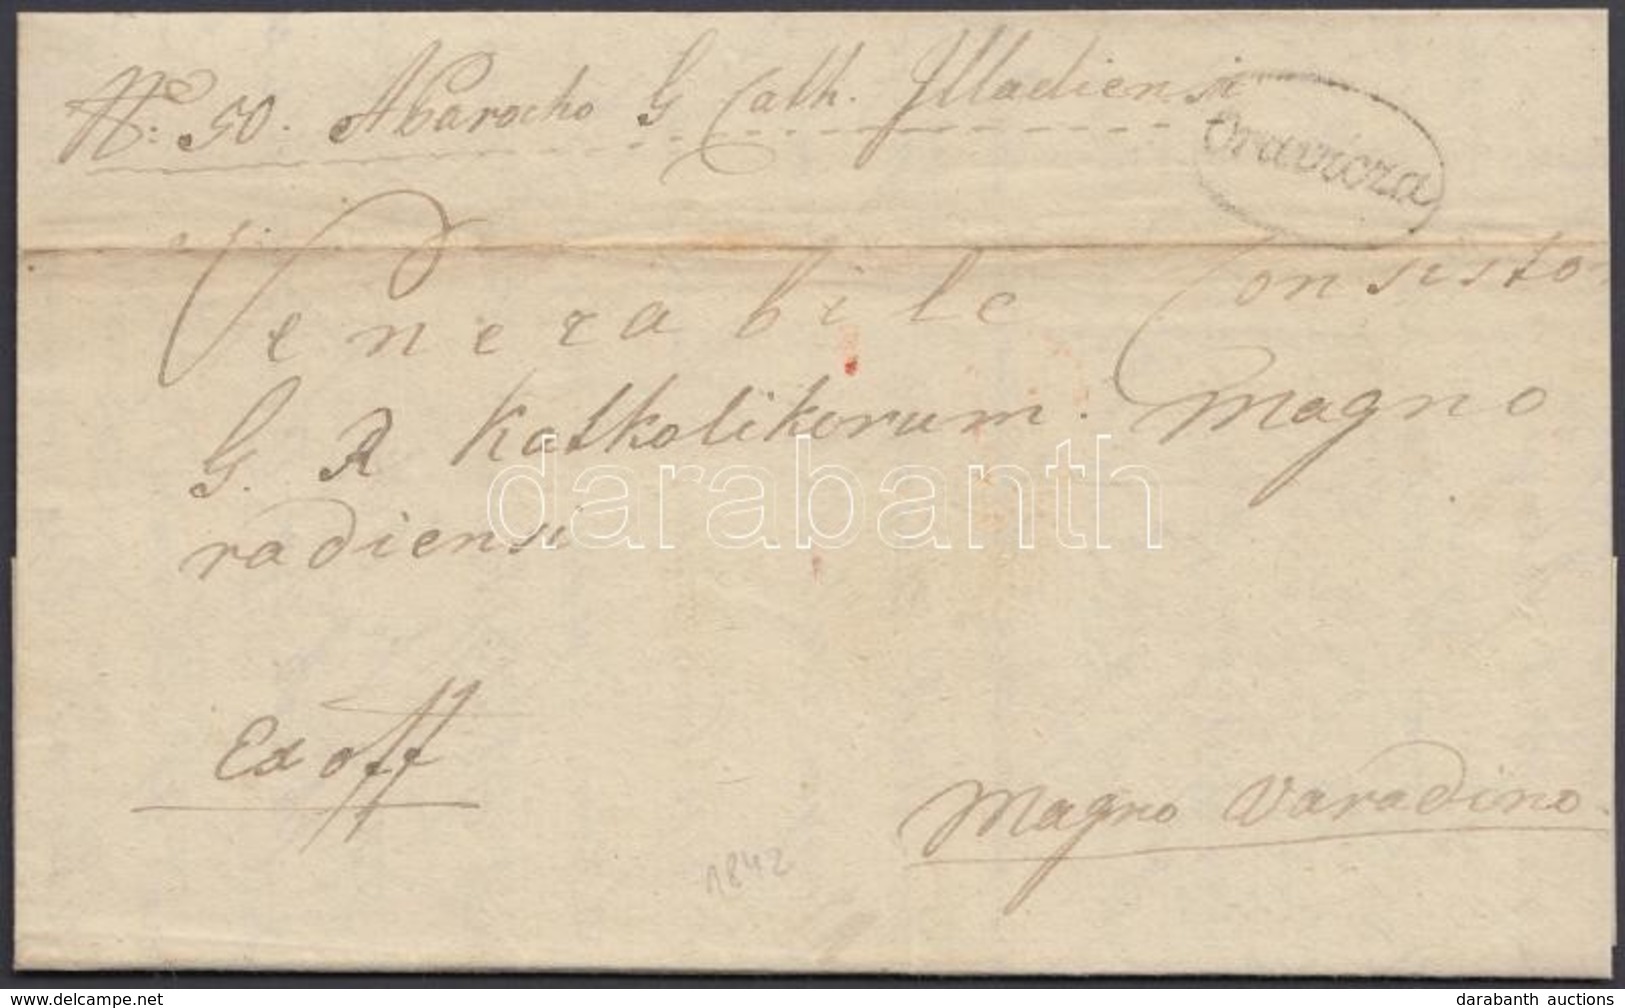 No: 50. A Parocho G Cath. Illadiensi
Oravicza
Venerabile Consisto
G. R Katholikorum. Magno
radiensi
darabanth
Ex off
Magno Varadino.
1842
www.delcampe.net
darabanth auctions